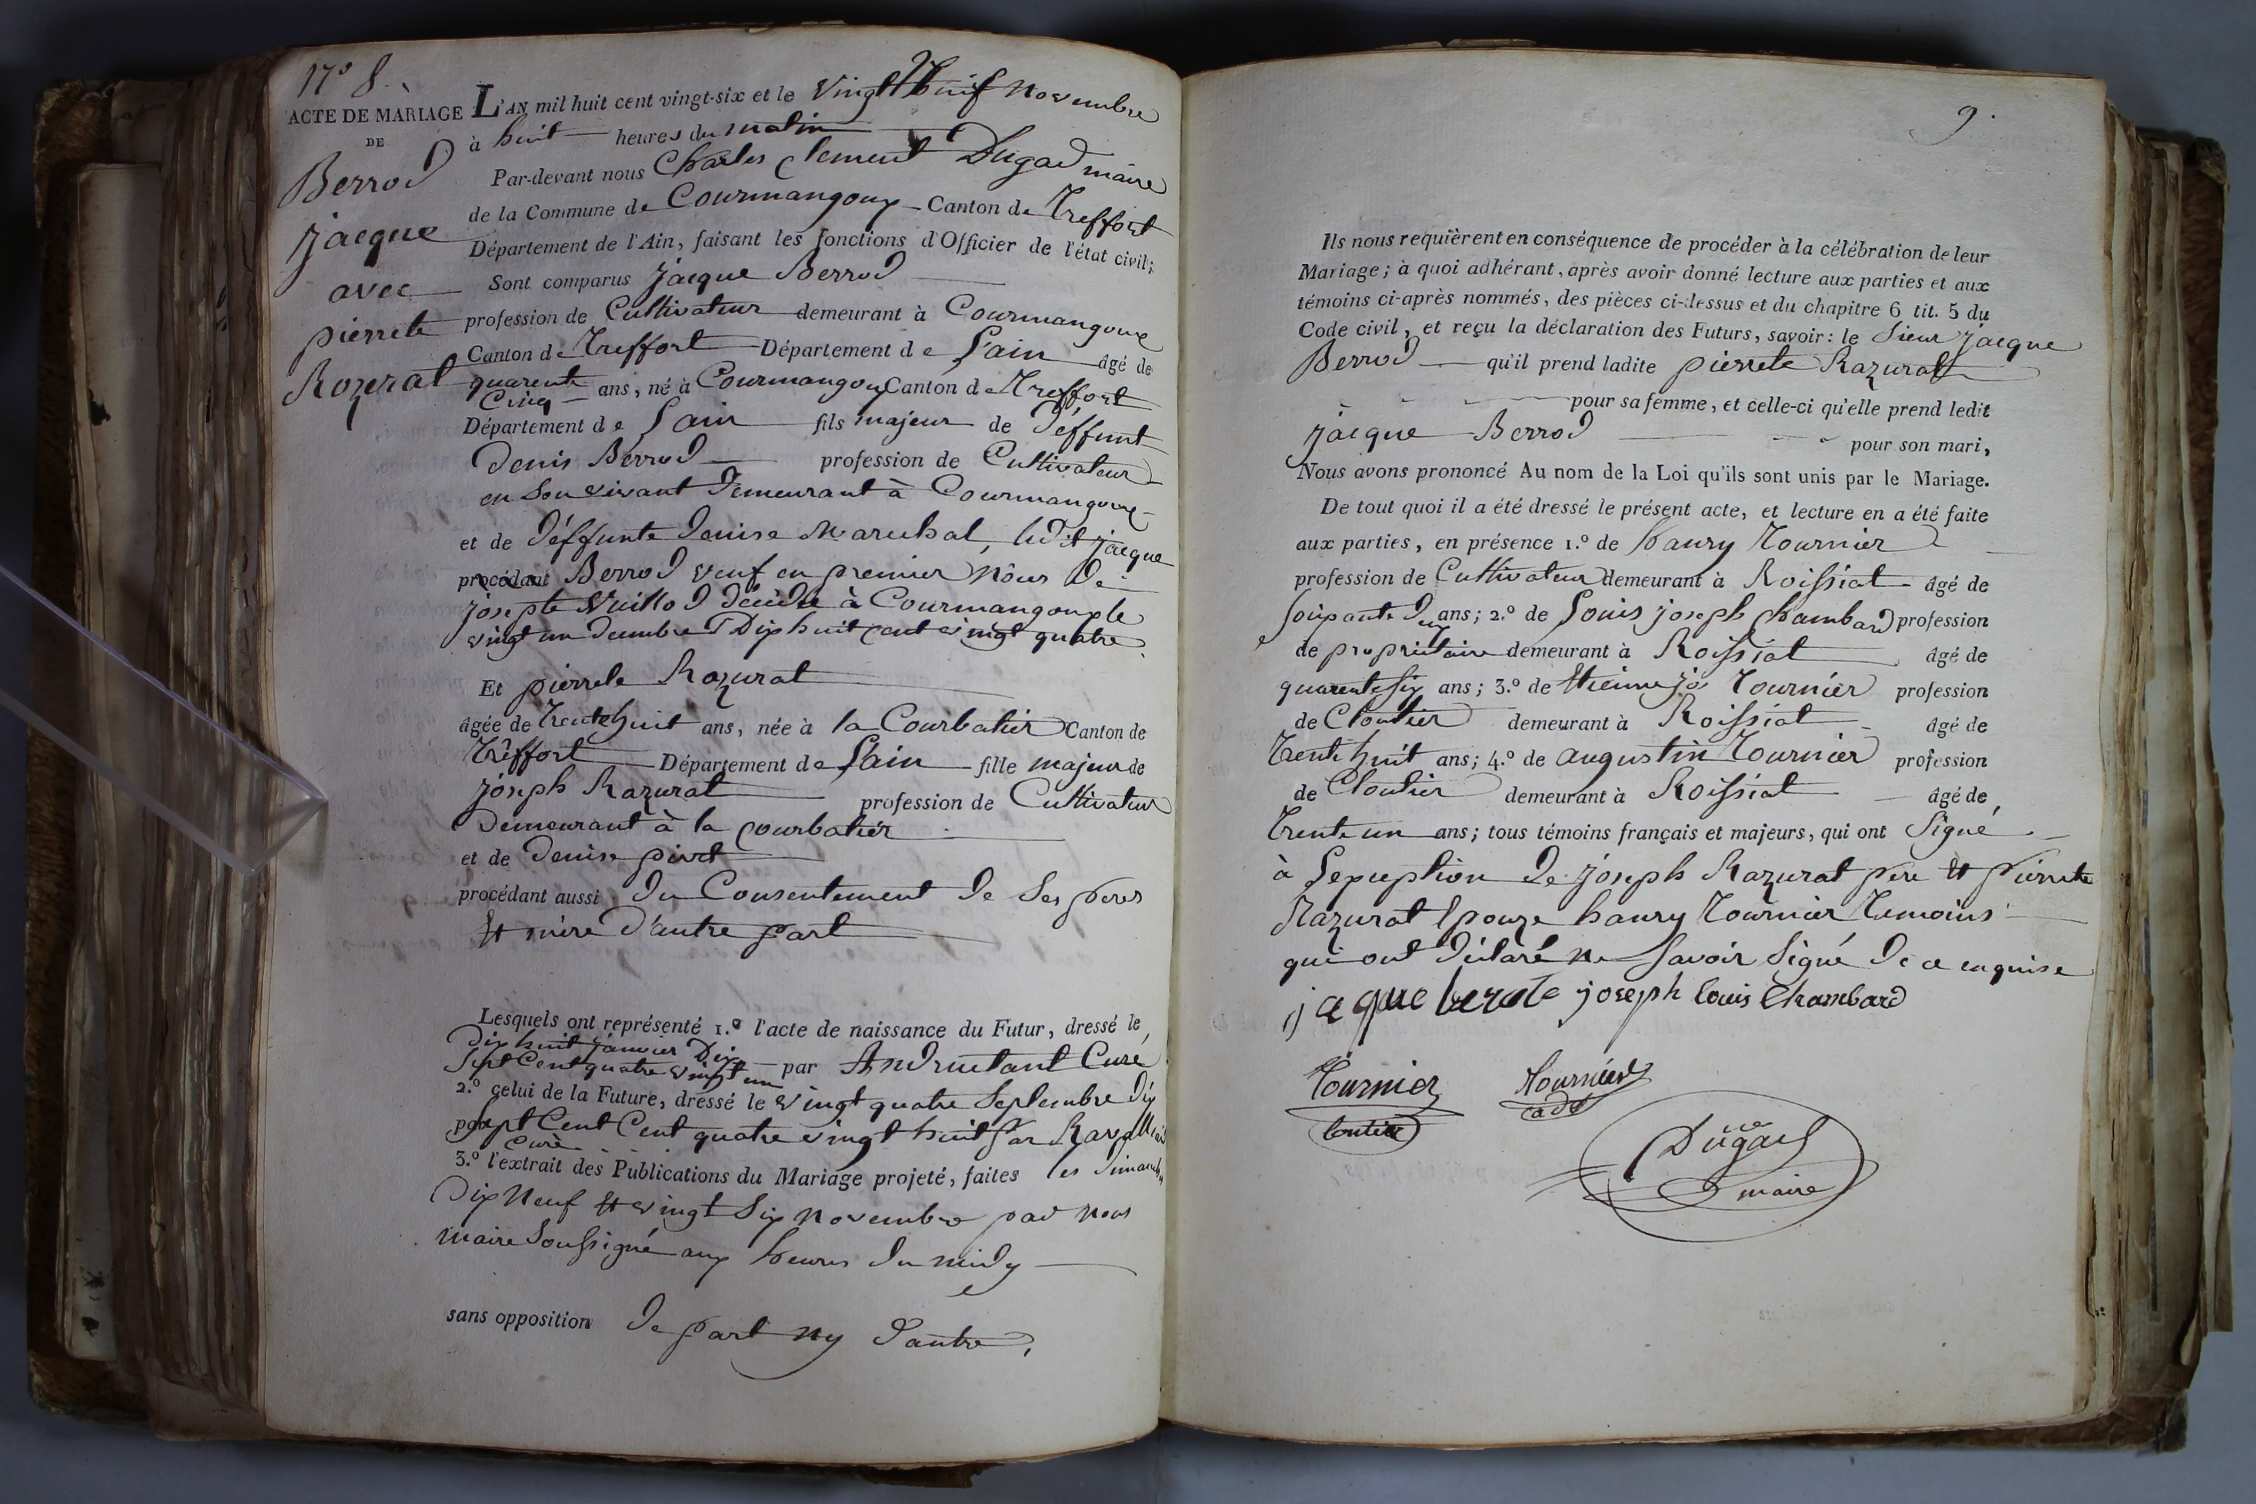 N.° 8.
ACTE DE MARIAGE
DE
Berrod
jacque
avec
pierrete
Rozurat
L'AN mil huit cent vingt-six et le vingt Neuf Novembre
à huit heures du matin
Par-devant nous Charles Clement Dugad maire
de la Commune de Courmangoux Canton de Treffort
Département de l'Ain, faisant les fonctions d'Officier de l'état civil;
Sont comparus jacque Berrod
profession de Cultivateur demeurant à Courmangoux
Canton de Treffort Département de L'ain âgé de
quarente Cinq ans, né à Courmangoux Canton de Treffort
Département de L'ain fils majeur de déffunt
denis Berrod profession de Cultivateur
en Son vivant demeurant à Courmangoux
et de déffunte denise Marechal, ledit jacque
procédant Berrod veuf en premier Nôus de
josepte Vuillod décédée à Courmangoux le
vingt un decembre Dix huit cent vingt quatre
Et pierrete Razurat
âgée de Trente huit ans, née à la Courbatier Canton de
Trêffort Département de L'ain fille majeur de
jôseph Razurat profession de Cultivateur
Demeurant à la Courbatiér
et de denise pivet
procédant aussi du Consentement de Ses peres
et mère d'autre part
Lesquels ont représenté 1.° l'acte de naissance du Futur, dressé le
Dix huit janvier Dix
Sept Cent quatre vingt un par Curé
2.° celui de la Future, dressé le vingt quatre Septembre Dix
par Sept Cent Cent quatre vingt huit Par
Curé
3.° l'extrait des Publications du Mariage projeté, faites les dimanches
Dix Neuf et vingt Six novembre par Nous
maire Soussigné aux heures du midy
sans opposition de part ny d'autre,
9.
Ils nous requièrent en conséquence de procéder à la célébration de leur
Mariage; à quoi adhérant, après avoir donné lecture aux parties et aux
témoins ci-après nommés, des pièces ci-dessus et du chapitre 6 tit. 5 du
Code civil, et reçu la déclaration des Futurs, savoir: le Sieur jacque
Berrod qu'il prend ladite pierrete Razurat
pour sa femme, et celle-ci qu'elle prend ledit
jacque Berrod pour son mari,
Nous avons prononcé Au nom de la Loi qu'ils sont unis par le Mariage.
De tout quoi il a été dressé le présent acte, et lecture en a été faite
aux parties, en présence 1.° de hanry Tournier
profession de Cultivateur demeurant à Roissiat âgé de
Soixante Deux ans; 2.° de Louis joseph Chambard profession
de propriétaire demeurant à Roissiat âgé de
quarente six ans; 3.° de Etienne jos Tourniér profession
de Cloutier demeurant à Roissiat âgé de
Trente huit ans; 4.° de augustin Tournier profession
de Cloutier demeurant à Roissiat âgé de
Trente un ans; tous témoins français et majeurs, qui ont Signé
à L'exception de jôseph Razurat pere et pierrete
Razurat Epouze hanry Tournier Temoins
qui ont déclaré ne Savoir Signé de ce enquise
jaque berote joseph louis Chambard
Tournier Tournier
cadet
Dugad
maire